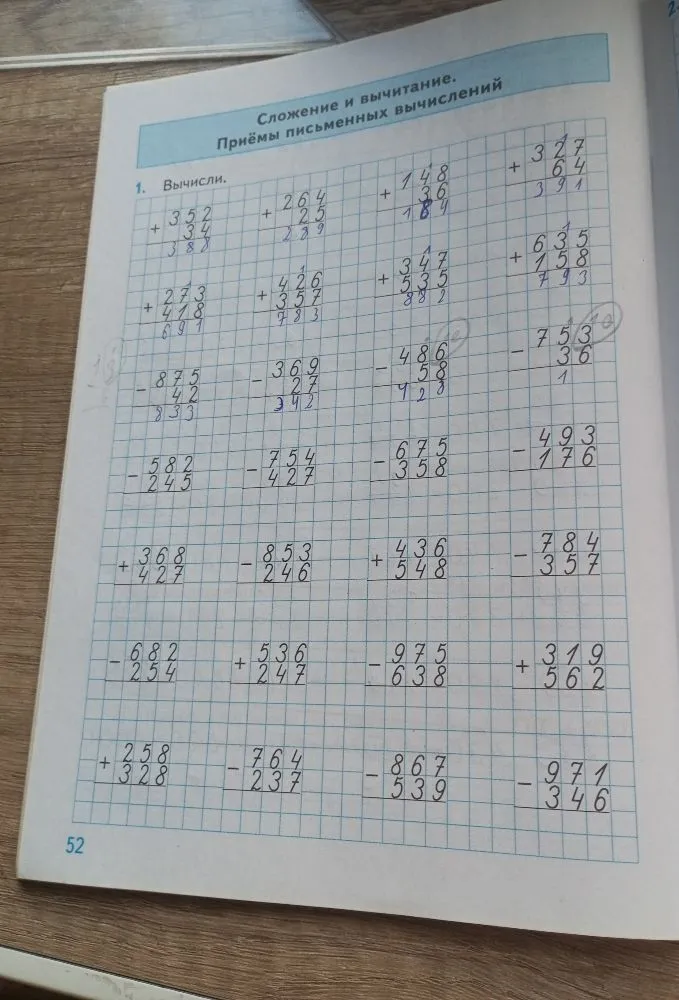 Сложение и вычитание.
Приёмы письменных вычислений
1. Вычисли.
+ 352 + 264 + 148 + 327
34 25 36 64
388 289 184 391
+ 273 + 426 + 347 + 635
418 357 535 158
691 783 882 793
- 875 - 369 - 486 - 753
42 27 58 36
833 342 428 1
- 582 - 754 - 675 - 493
245 427 358 176
+ 368 - 853 + 436 - 784
427 246 548 357
- 682 + 536 - 975 + 319
254 247 638 562
+ 258 - 764 - 867 - 971
328 237 539 346
52